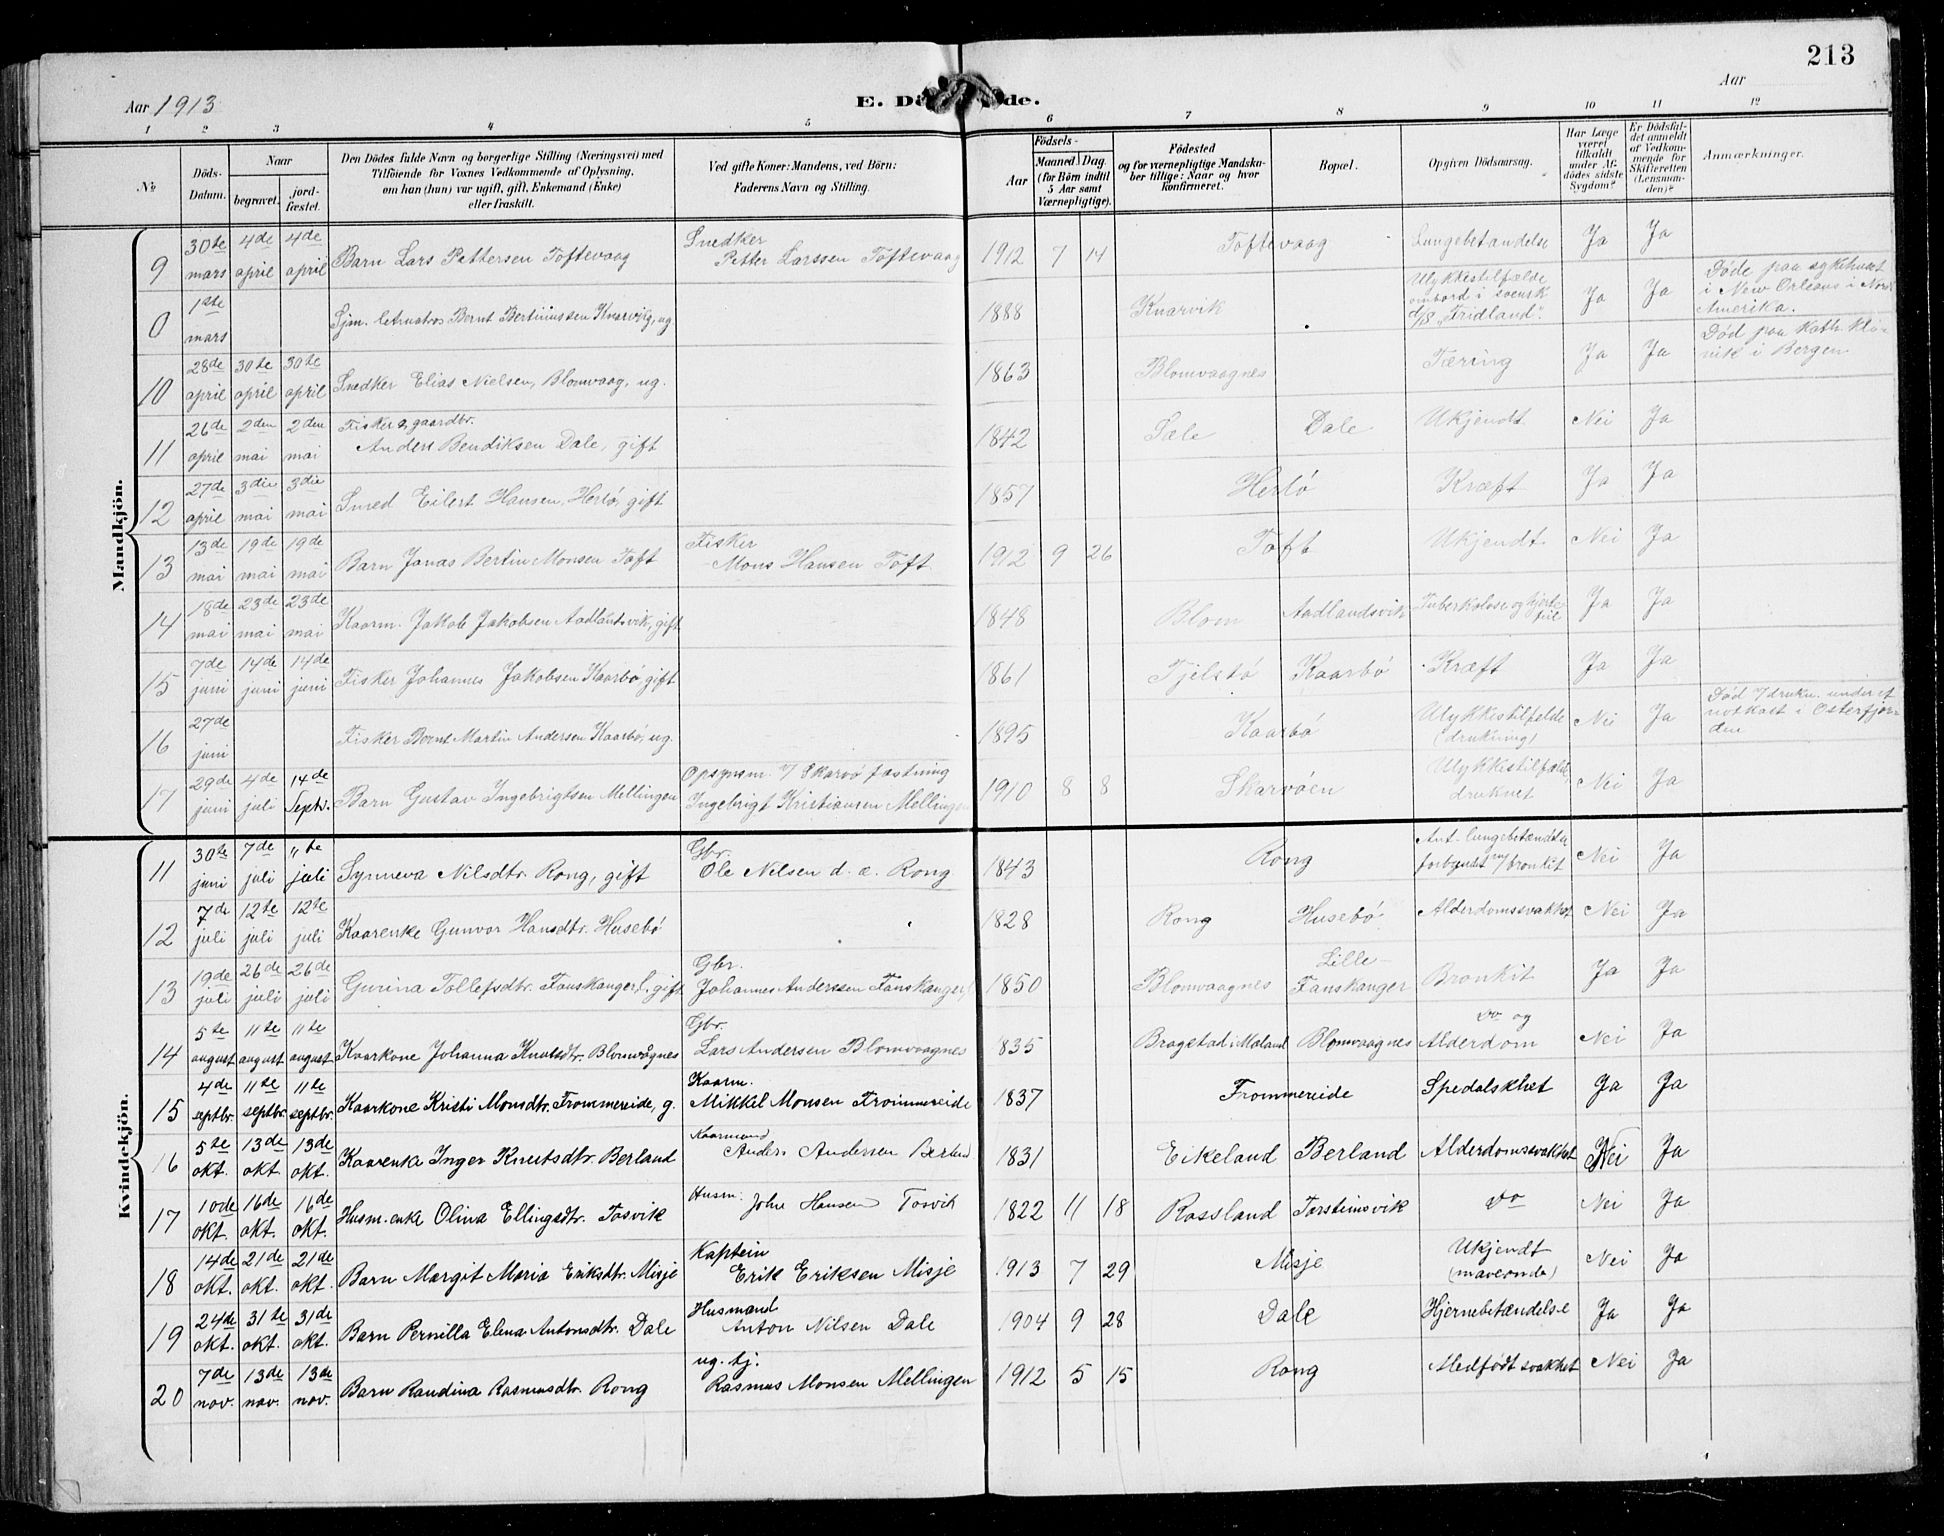 213
Aar 1913
E. Dö de.
Aar
1 2 3 4 5 6 7 8 9 10 11 12
No
Döds-Datum.
Naar
begravet.
jord-fæstet.
Den Dödes fulde Navn og borgerlige Stilling (Næringsvei) med
Tilföiende for Voxnes Vedkommende af Oplysning,
om han (hun) var ugift, gift, Enkemand (Enke)
eller fraskilt.
Ved gifte Koner: Mandens, ved Börn:
Faderens Navn og Stilling.
Födsels-
Aar
Maaned Dag.
(for Börn indtil
5 Aar samt
Værnepligtige).
Födested
og for værnepligtige Mandska-
ber tillige: Naar og hvor
konfirmeret.
Bopæl.
Opgiven Dödsaarsag.
Har Læge
været
tilkaldt
under Af-
dödes sidste
Sygdom?
Er Dödsfal-
det anmeldt
af Vedkom-
mende for
Skifteretten
(Lensman-
den)?
Anmærkninger.
Mandkjön.
9 30te mars 4de april 4de april Barn Lars Pettersen Toftevaag Snedker Petter Larssen Toftevaag 1912 7 14 Toftevaag Lungebetændelse Ja Ja
0 1ste mars Sjm. letmatros Bernt Bertinussen Knarvig, ug. 1888 Knarvik Ulykkestilfælde ombord i svensk d/s "Fridland". Ja Ja Döde paa sykehuset i New Orleans i Nord Amerika.
10 28de april 30te april 30te april Snedker Elias Nielsen, Blomvaag, ug. 1863 Blomvaagnes Tæring Ja Ja Död paa Kath. klinik i Bergen
11 26de april 2den mai 2den mai Fisker & gaardbr. Anders Bendiksen Dale, gift 1842 Sæle Dale Ukjendt Nei Ja
12 27de april 3die mai 3die mai Smed Eilert Hansen, Herlö, gift 1857 Herlö Kræft Ja Ja
13 13de mai 19de mai 19de mai Barn Jonas Bertin Monsen Toft Fisker Mons Hansen Toft 1912 9 26 Toft Ukjendt Nei Ja
14 18de mai 23de mai 23de mai Kaarm. Jakob Jakobsen Aadlandsvik, gift 1848 Blom Aadlandsvik Tuberkolose og hjertefeil Ja Ja
15 7de juni 14de juni 14de juni Fisker Johannes Jakobsen Kaarbö, gift 1861 Tjelstö Kaarbö Kræft Ja Ja
16 27de juni Fisker Bernt Martin Andersen Kaarbö, ug. 1895 Kaarbö Ulykkestilfelde (drukning) Nei Ja Död v/ drukn. under et notkast i Osterfjorden
17 29de juni 4de juli 14de Septr. Barn Gustav Ingebrigtsen Mellingen Opsynsm. v/ Skarvö fæstning Ingebrigt Kristiansen Mellingen 1910 8 8 Skarvöen Ulykkestilfælde druknet Nei Ja
Kvindekjön.
11 30te juni 7de juli 11te juli Synneva Nilsdtr. Rong, gift Gbr. Ole Nilsen d. æ. Rong 1843 Rong Ant. lungebetændelse forbundet m/ bronkit Nei Ja
12 7de juli 12te juli 12te juli Kaarenke Gunvor Hansdtr. Husebö 1828 Rong Husebö Alderdomssvakhet Nei Ja
13 19de juli 26de juli 26de juli Gurina Tollefsdtr. Fanskanger l., gift Gbr. Johannes Anderssen Fanskanger l. 1850 Blomvaagnes Lille-Fanskanger Bronkit Ja Ja
14 5te august 11te august 11te august Kaarkone Johanna Knutsdtr. Blomvågnes Gbr. Lars Andersen Blomvaagnes 1835 Bragstad i Moland Blomvaagnes do og Alderdom Nei Ja
15 4de septbr. 11te septbr. 11te septbr. Kaarkone Kristi Monsdtr. Frommereide, g. Kaarm. Mikkel Monsen Frommereide 1837 Frommereide Spedalskhet Ja Ja
16 5te okt. 13de okt. 13de okt. Kaarenke Inger Knutsdtr. Berland Kaarmand Anders Andersen Berland 1831 Eikeland Berland Alderdomssvakhet Nei Ja
17 10de okt. 16de okt. 16de okt. Husm.enke Olina Ellingsdtr. Tosvik Husm. John Hansen Tosvik 1822 11 18 Rossland Torsteinsvik do Nei Ja
18 14de okt. 21de okt. 21de okt. Barn Margit Maria Eriksdtr. Misje Kaptein Erik Eriksen Misje 1913 7 29 Misje Ukjendt (maveonde) Nei Ja
19 24de okt. 31te okt. 31de okt. Barn Pernilla Elena Antonsdtr. Dale Husmand Anton Nilsen Dale 1904 9 28 Dale Hjernebetændelse Ja Ja
20 7de nov. 13de nov. 13de nov. Barn Randina Rasmusdtr. Rong ug. tj. Rasmus Monsen Mellingen 1912 5 15 Rong Medfödt svakhet Nei Ja